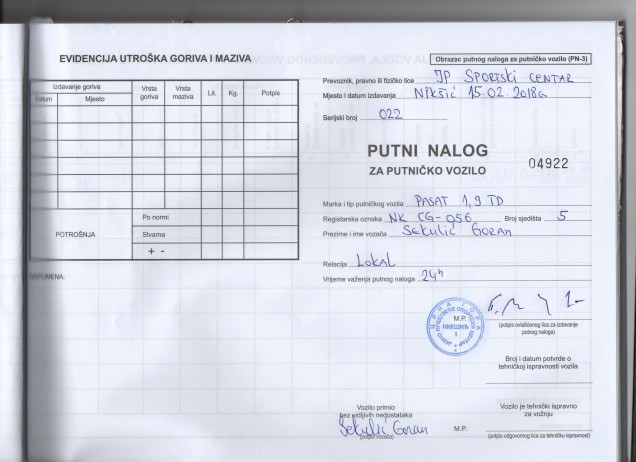 EVIDENCIJA UTROŠKA GORIVA I MAZIVA
Izdavanje goriva
Datum
Mjesto
Vrsta goriva
Vrsta maziva
Lit.
Kg.
Potpis
POTROŠNJA
Po normi
Stvarna
+ -
NAPOMENA:
Obrazac putnog naloga za putničko vozilo (PN-3)
Prevoznik, pravno ili fizičko lice JP SPORTSKI CENTAR
Mjesto i datum izdavanja NIKŠIĆ 15.02.2018g
Serijski broj 022
PUTNI NALOG
ZA PUTNIČKO VOZILO
04922
Marka i tip putničkog vozila PASAT 1,9 TD
Registarska oznaka NK CG-056 Broj sjedišta 5
Prezime i ime vozača SEKULIĆ GORAN
Relacija LOKAL
Vrijeme važenja putnog naloga 24h
М.P.
ЦРНА ГОРА
НИКШИЋ
1
(potpis ovlašćenog lica za izdavanje
putnog naloga)
Broj i datum potvrde o
tehničkoj ispravnosti vozila
Vozilo primio
bez vidljivih nedostataka
Sekulić Goran
(potpis vozača)
M.P.
Vozilo je tehnički ispravno
za vožnju
(potpis odgovornog lica za tehničku ispravnost)